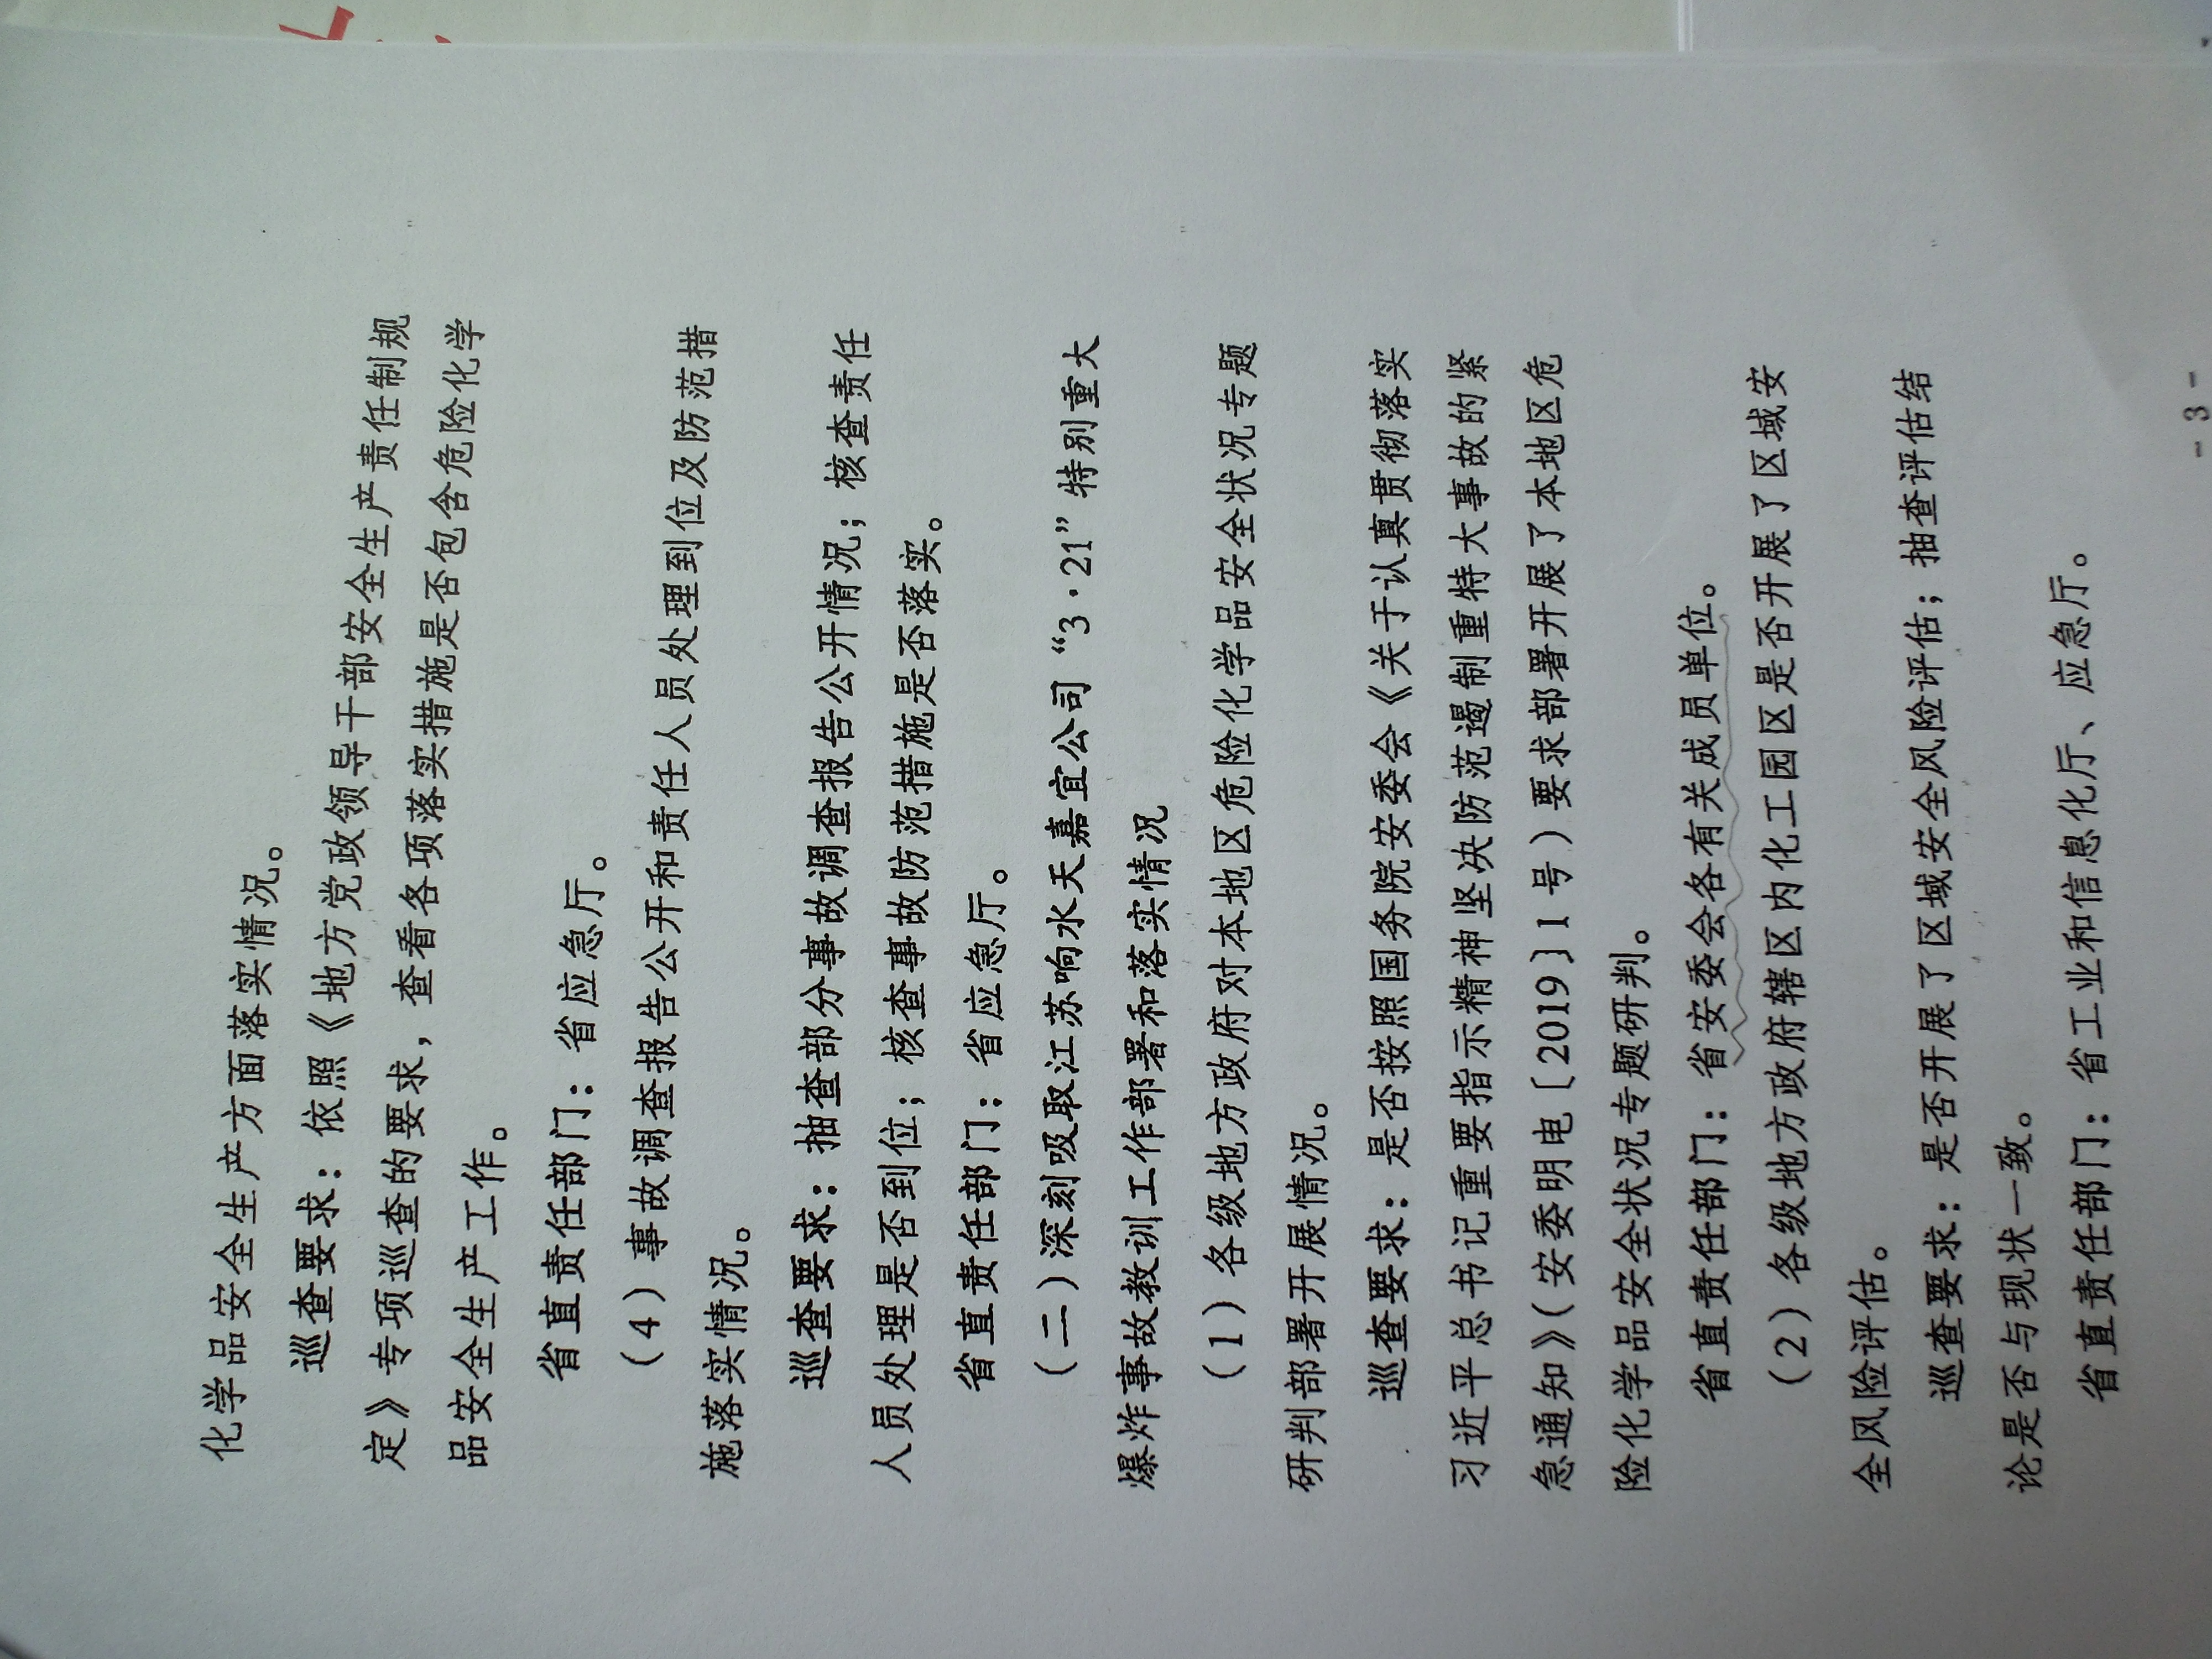 化学品安全生产方面落实情况。
巡查要求：依照《地方党政领导干部安全生产责任制规
定》专项巡查的要求，查看各项落实措施是否包含危险化学
品安全生产工作。
省直责任部门：省应急厅。
（4）事故调查报告公开和责任人员处理到位及防范措
施落实情况。
巡查要求：抽查部分事故调查报告公开情况；核查责任
人员处理是否到位；核查事故防范措施是否落实。
省直责任部门：省应急厅。
（二）深刻吸取江苏响水天嘉宜公司“3·21”特别重大
爆炸事故教训工作部署和落实情况
（1）各级地方政府对本地区危险化学品安全状况专题
研判部署开展情况。
巡查要求：是否按照国务院安委会《关于认真贯彻落实
习近平总书记重要指示精神坚决防范遏制重特大事故的紧
急通知》（安委明电〔2019〕1号）要求部署开展了本地区危
险化学品安全状况专题研判。
省直责任部门：省安委会各有关成员单位。
（2）各级地方政府辖区内化工园区是否开展了区域安
全风险评估。
巡查要求：是否开展了区域安全风险评估；抽查评估结
论是否与现状一致。
省直责任部门：省工业和信息化厅、应急厅。
- 3 -